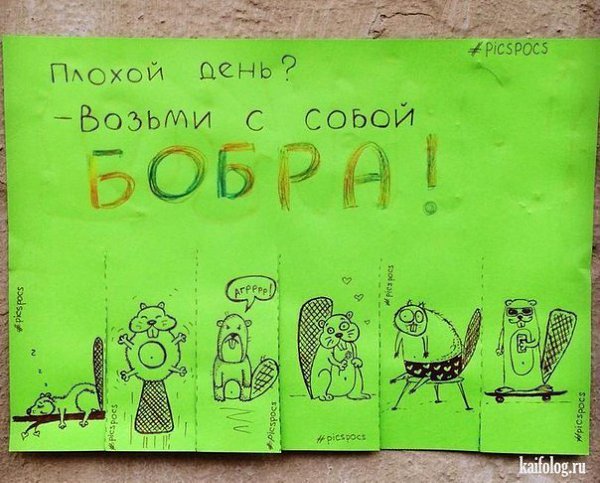 #PICSPOCS
Плохой день?
-Возьми с собой
БОБРА!
#picspocs
#picspocs
Агрррр!
#picspocs
#picspocs
#picspocs
#picspocs
kaifolog.ru